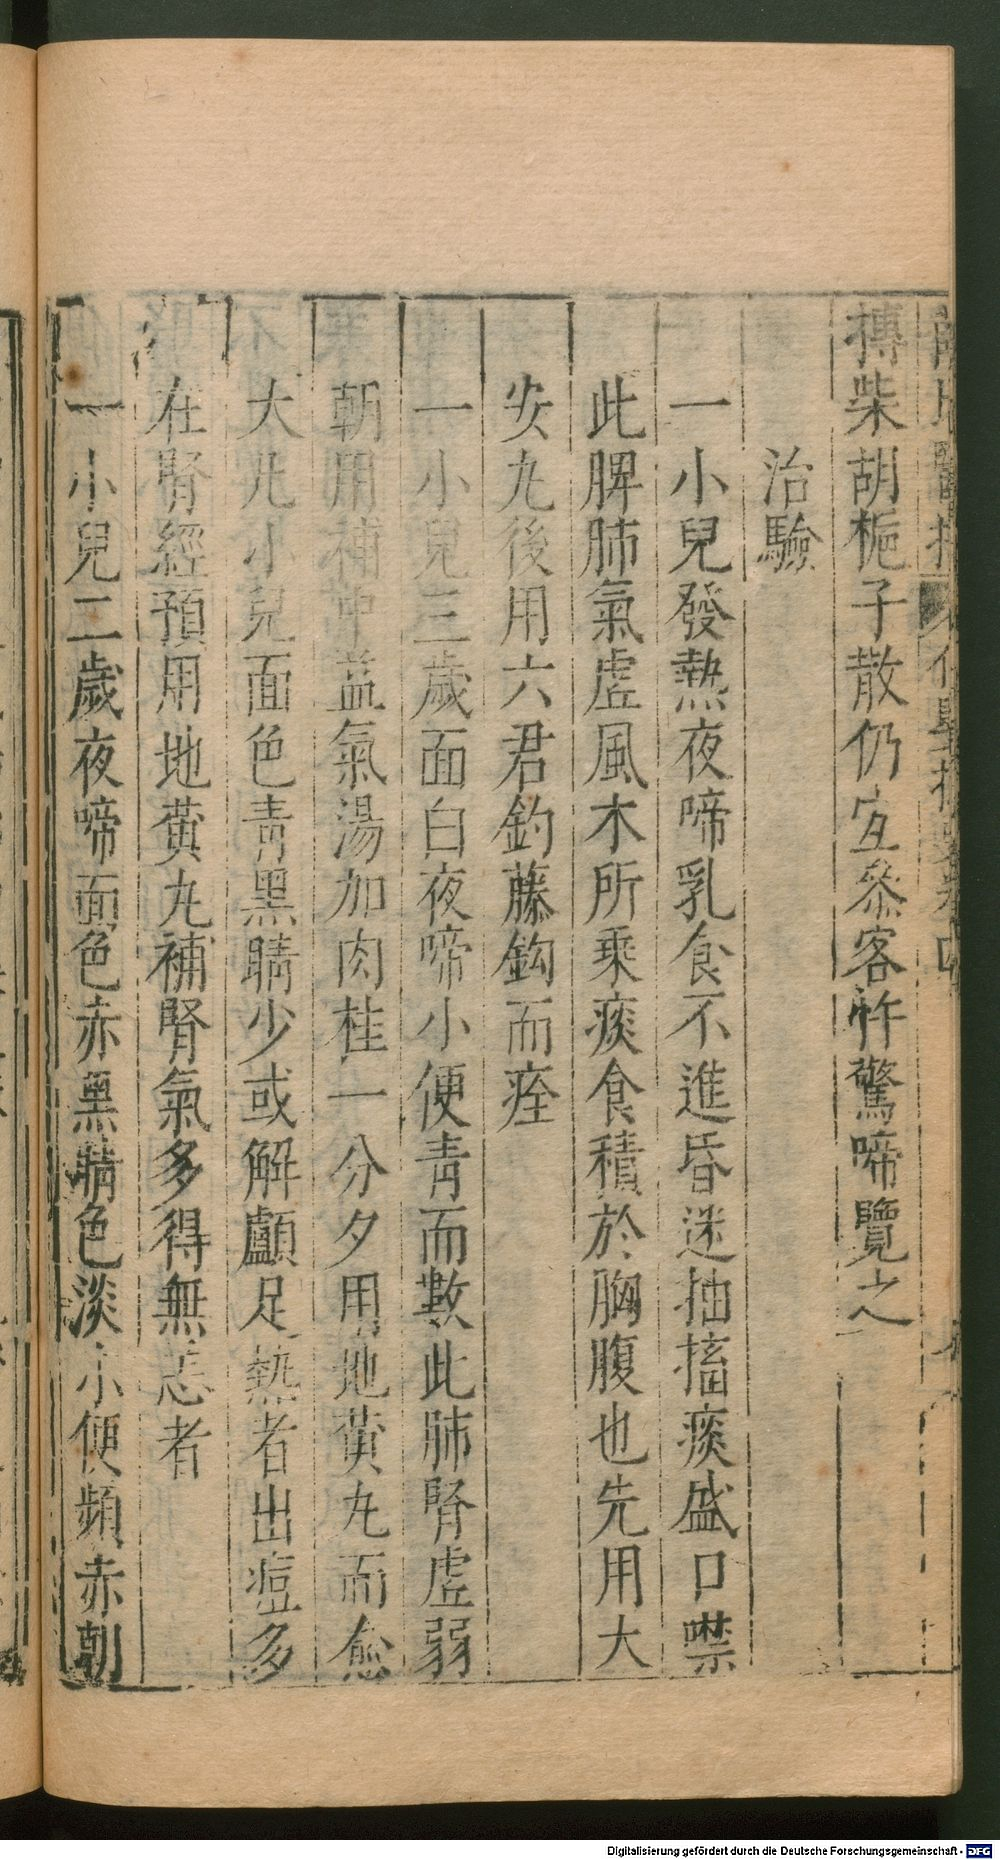 搏柴胡梔子散仍宜叅客忤驚啼覽之
治驗
一小兒發熱夜啼乳食不進昏迷抽搐痰盛口噤
此脾肺氣虛風木所乗痰食積於胸腹也先用大
安丸後用六君釣藤鈎而痊
一小兒三歲面白夜啼小便青而數此肺腎虛弱
朝用補中益氣湯加肉桂一分夕用地黄丸而愈
大凡小兒面色青黑睛少或解顱足熱者出痘多
在腎經預用地黄丸補腎氣多得無恙者
一小兒二歲夜啼面色赤黑睛色淡小便頻赤朝
Digitalisierung gefördert durch die Deutsche Forschungsgemeinschaft - DFG